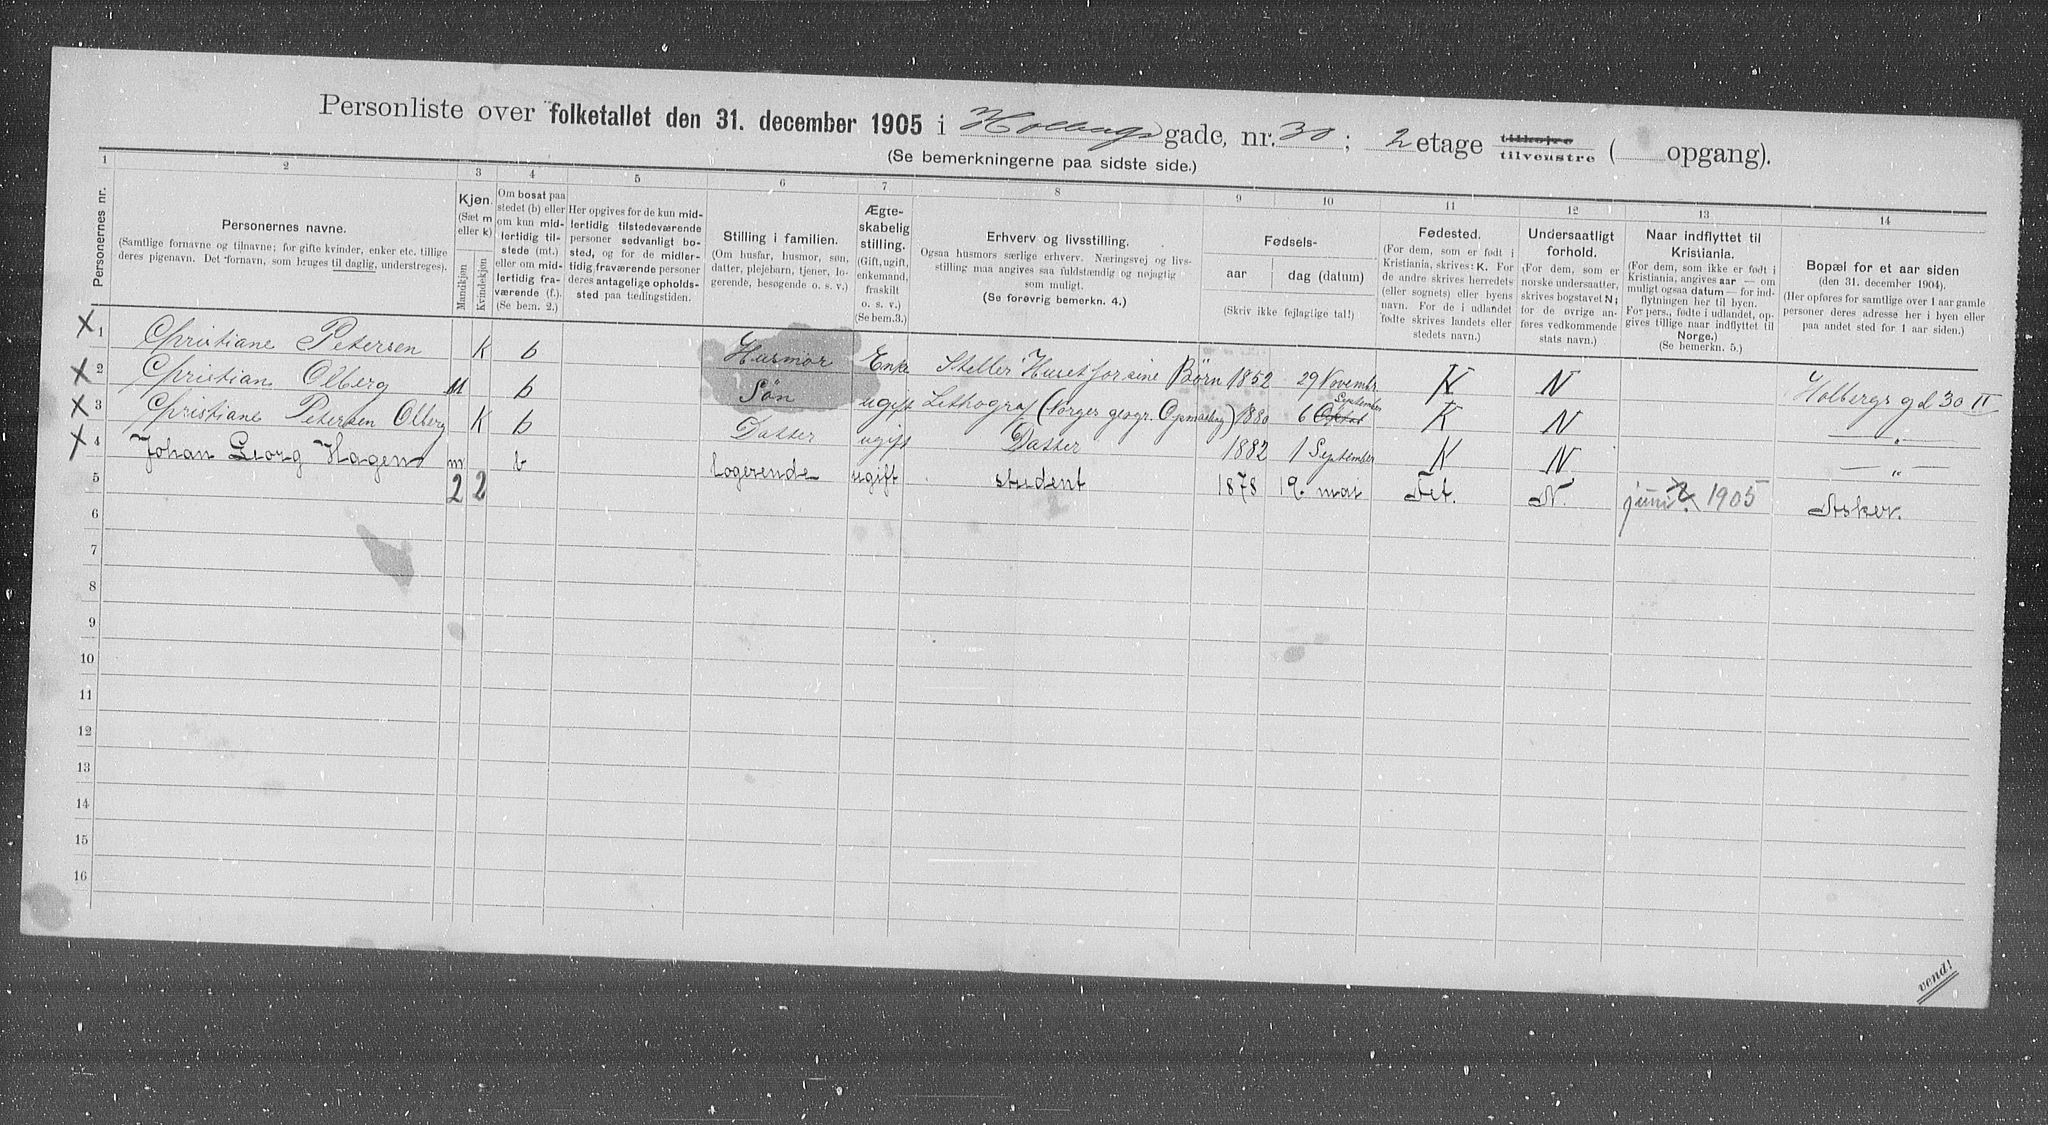 Personliste over folketallet den 31. december 1905 i Holbergs gade, nr. 30; 2 etage tilhøjre tilvenstre ( opgang).
(Se bemerkningerne paa sidste side.)
1 2 3 4 5 6 7 8 9 10 11 12 13 14
Personernes nr.
Personernes navne.
(Samtlige fornavne og tilnavne; for gifte kvinder, enker etc. tillige
deres pigenavn. Det fornavn, som bruges til daglig, understreges).
Kjøn.
(Sæt m
eller k)
Mandkjøn
Kvindekjøn
Om bosat paa
stedet (b) eller
om kun mid-
lertidig til-
stede (mt.)
eller om mid-
lertidig fra-
værende (f.).
(Se bem. 2.)
Her opgives for de kun mid-
lertidig tilstedeværende
personer sedvanligt bo-
sted, og for de midler-
tidig fraværende personer
deres antagelige opholds-
sted paa tællingstiden.
Stilling i familien.
(Om husfar, husmor, søn,
datter, plejebarn, tjener, lo-
gerende, besøgende o. s. v.)
Ægte-
skabelig
stilling.
(Gift, ugift,
enkemand,
fraskilt
o. s. v.)
(Se bem.3.)
Erhverv og livsstilling.
Ogsaa husmors særlige erhverv. Næringsvej og livs-
stilling maa angives saa fuldstændig og nøjagtig
som muligt.
(Se forøvrig bemerkn. 4.)
Fødsels-
aar dag (datum)
(Skriv ikke fejlagtige tal!)
Fødested.
(For dem, som er født i
Kristiania, skrives: K. For
de andre skrives herredets
(eller sognets) eller byens
navn. For de i udlandet
fødte skrives landets eller
stedets navn.)
Undersaatligt
forhold.
(For dem, som er
norske undersaatter,
skrives bogstavet N;
for de øvrige an-
føres vedkommende
stats navn.)
Naar indflyttet til
Kristiania.
(For dem, som ikke er født i
Kristiania, angives aar — om
muligt ogsaa datum — for ind-
flytningen her til byen.
For pers., fødte i udlandet, op-
gives tillige naar indflyttet til
Norge.)
(Se bemerkn. 5.)
Bopæl for et aar siden
(den 31. december 1904).
(Her opføres for samtlige over 1 aar gamle
personer deres adresse her i byen eller
paa andet sted for 1 aar siden.)
X 1 Christiane Petersen K b Husmor Enke Steller Huset for sine Børn 1852 29 Novembr K N Holbergs gd 30 II
X 2 Christian Olberg M b Søn ugift Lithograf (Norges geogr. Opmaaling) 1880 6 Oktob September K N — " —
X 3 Christiane Petersen Olberg K b Datter ugift Datter 1882 1 September K N — " —
X 4 Johan Georg Hagen m b logerende ugift student 1878 19. mai Fet. N. juni 1905 Asker.
5 2 2
6
7
8
9
10
11
12
13
14
15
16
vend!